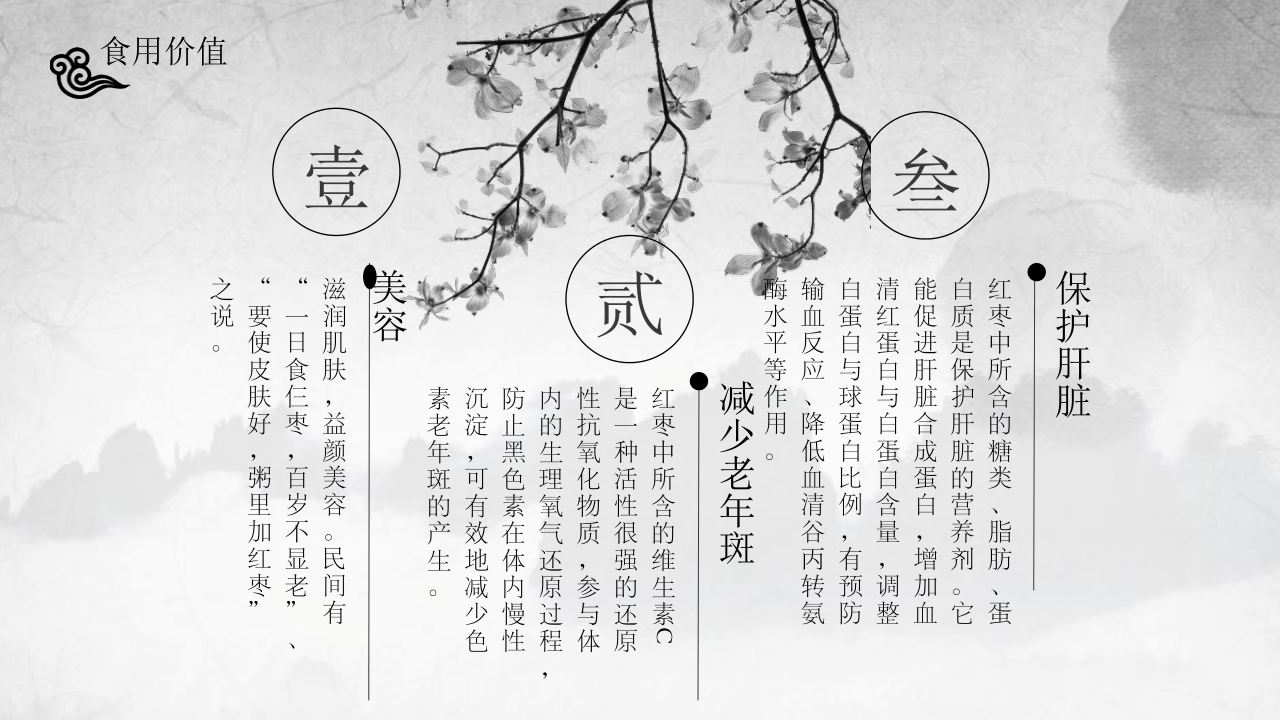 食用价值
壹
美容
滋润肌肤，益颜美容。民间有
“一日食仨枣，百岁不显老”、
“要使皮肤好，粥里加红枣”
之说。
贰
减少老年斑
红枣中所含的维生素C
是一种活性很强的还原
性抗氧化物质，参与体
内的生理氧气还原过程，
防止黑色素在体内慢性
沉淀，可有效地减少色
素老年斑的产生。
叁
保护肝脏
红枣中所含的糖类、脂肪、蛋
白质是保护肝脏的营养剂。它
能促进肝脏合成蛋白，增加血
清红蛋白与白蛋白含量，调整
白蛋白与球蛋白比例，有预防
输血反应、降低血清谷丙转氨
酶水平等作用。